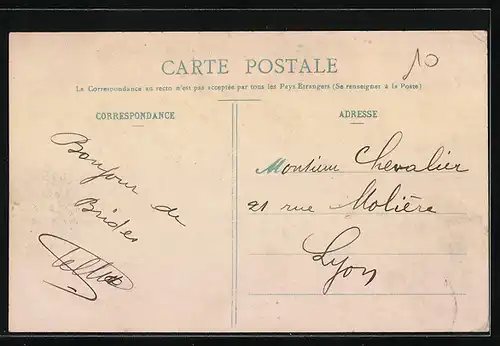 CARTE POSTALE
10
La Correspondance au recto n'est pas acceptée par tous les Pays Etrangers (Se renseigner à la Poste)
CORRESPONDANCE
ADRESSE
Bonjour de
Brides
Monsieur Chevalier
21 rue Molière
Lyon